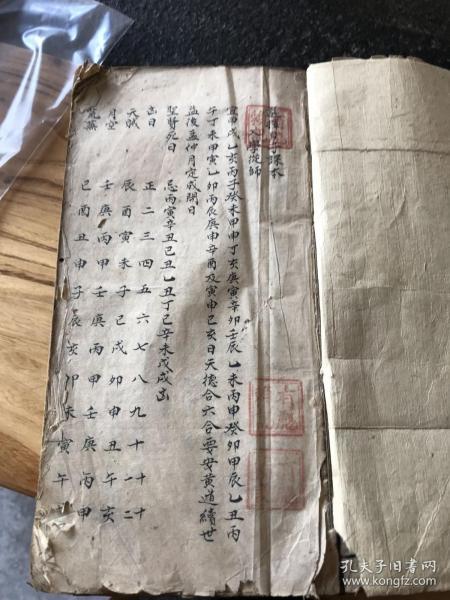 子課本
入學從師
宜甲戌乙亥丙子癸未甲申丁亥庚寅辛卯壬辰乙未丙申癸卯甲辰乙丑丙
午丁未甲寅乙卯丙辰庚申辛酉及寅申巳亥日天德合六合要安黄道續世
益後孟仲月定成開日
聖賢死日 忌丙寅辛丑己丑乙丑丁巳辛未戊戌出
出日 正二三四五六七八九十十一十二
天賊 辰酉寅未子巳戌卯申丑午亥
月空 壬庚丙甲壬庚丙甲壬庚丙甲
荒蕪 巳酉丑申子辰亥卯未寅午
孔夫子旧书网
www.kongfz.com